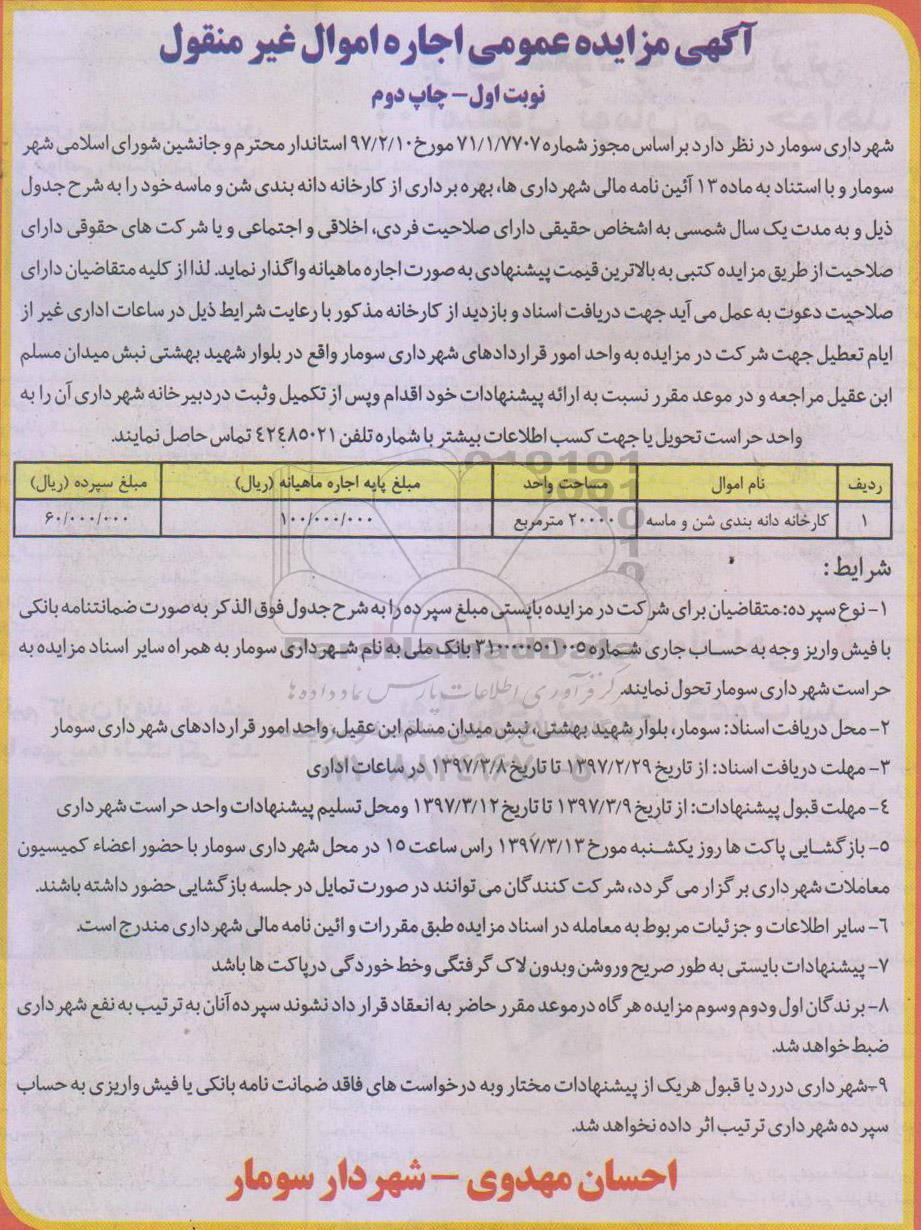 آگهی مزایده عمومی اجاره اموال غیر منقول
نوبت اول - چاپ دوم
شهرداری سومار در نظر دارد بر اساس مجوز شماره ۷۱/۱/۷۷۰۷ مورخ ۹۷/۲/۱۰ استاندار محترم و جانشین شورای اسلامی شهر
سومار و با استناد به ماده ۱۳ آئین نامه مالی شهرداری ها، بهره برداری از کارخانه دانه بندی شن و ماسه خود را به شرح جدول
ذیل و به مدت یک سال شمسی به اشخاص حقیقی دارای صلاحیت فردی، اخلاقی و اجتماعی و یا شرکت های حقوقی دارای
صلاحیت از طریق مزایده کتبی به بالاترین قیمت پیشنهادی به صورت اجاره ماهیانه واگذار نماید. لذا از کلیه متقاضیان دارای
صلاحیت دعوت به عمل می آید جهت دریافت اسناد و بازدید از کارخانه مذکور با رعایت شرایط ذیل در ساعات اداری غیر از
ایام تعطیل جهت شرکت در مزایده به واحد امور قراردادهای شهرداری سومار واقع در بلوار شهید بهشتی نبش میدان مسلم
ابن عقیل مراجعه و در موعد مقرر نسبت به ارائه پیشنهادات خود اقدام وپس از تکمیل وثبت دردبیرخانه شهرداری آن را به
واحد حراست تحویل یا جهت کسب اطلاعات بیشتر با شماره تلفن ۴۲۴۸۵۰۲۱ تماس حاصل نمایند.
ردیف نام اموال مساحت واحد مبلغ پایه اجاره ماهیانه (ریال) مبلغ سپرده (ریال)
۱ کارخانه دانه بندی شن و ماسه ۲۰۰۰۰ مترمربع ۱۰۰/۰۰۰/۰۰۰ ۶۰/۰۰۰/۰۰۰
شرایط:
۱- نوع سپرده: متقاضیان برای شرکت در مزایده بایستی مبلغ سپرده را به شرح جدول فوق الذکر به صورت ضمانتنامه بانکی
یا فیش واریز وجه به حساب جاری شماره ۳۱۰۰۰۰۰۵۰۱۰۰۵ بانک ملی به نام شهرداری سومار به همراه سایر اسناد مزایده به
حراست شهرداری سومار تحول نمایند.
۲- محل دریافت اسناد: سومار، بلوار شهید بهشتی، نبش میدان مسلم ابن عقیل، واحد امور قراردادهای شهرداری سومار
۳- مهلت دریافت اسناد: از تاریخ ۱۳۹۷/۲/۲۹ تا تاریخ ۱۳۹۷/۳/۸ در ساعات اداری
۴- مهلت قبول پیشنهادات: از تاریخ ۱۳۹۷/۳/۹ تا تاریخ ۱۳۹۷/۳/۱۲ ومحل تسلیم پیشنهادات واحد حراست شهرداری
۵- بازگشایی پاکت ها روز یکشنبه مورخ ۱۳۹۷/۳/۱۳ راس ساعت ۱۵ در محل شهرداری سومار با حضور اعضاء کمیسیون
معاملات شهرداری برگزار می گردد، شرکت کنندگان می توانند در صورت تمایل در جلسه بازگشایی حضور داشته باشند.
۶- سایر اطلاعات و جزئیات مربوط به معامله در اسناد مزایده طبق مقررات و ائین نامه مالی شهرداری مندرج است.
۷- پیشنهادات بایستی به طور صریح وروشن وبدون لاک گرفتگی وخط خوردگی درپاکت ها باشد
۸- برندگان اول ودوم وسوم مزایده هرگاه درموعد مقرر حاضر به انعقاد قرار داد نشوند سپرده آنان به ترتیب به نفع شهرداری
ضبط خواهد شد.
۹-شهرداری دررد یا قبول هریک از پیشنهادات مختار وبه درخواست های فاقد ضمانت نامه بانکی یا فیش واریزی به حساب
سپرده شهرداری ترتیب اثر داده نخواهد شد.
احسان مهدوی - شهردار سومار